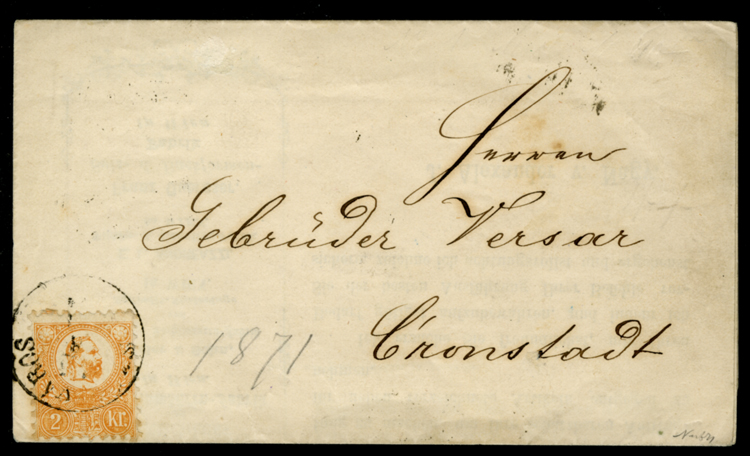 Herren
Gebrüder Versar
Cronstadt
1871
VÁROS
2 kr.